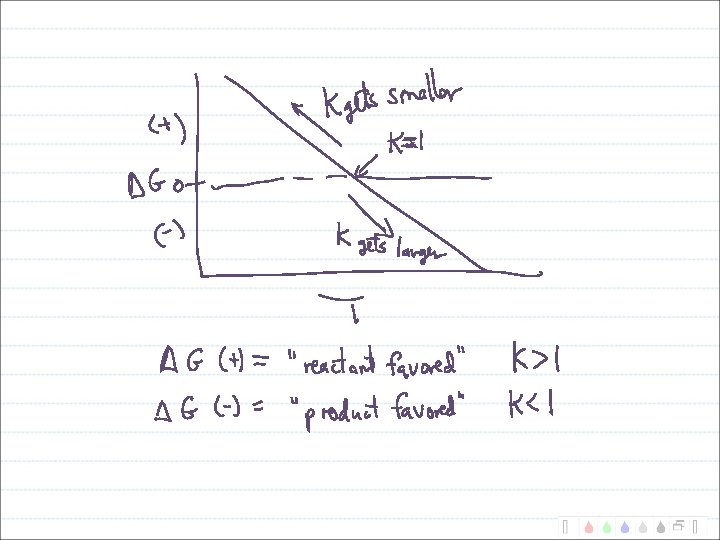 K gets smaller
(+)
K=1
ΔG 0
(-)
K gets larger
ΔG (+) = "reactant favored" K>1
ΔG (-) = "product favored" K<1